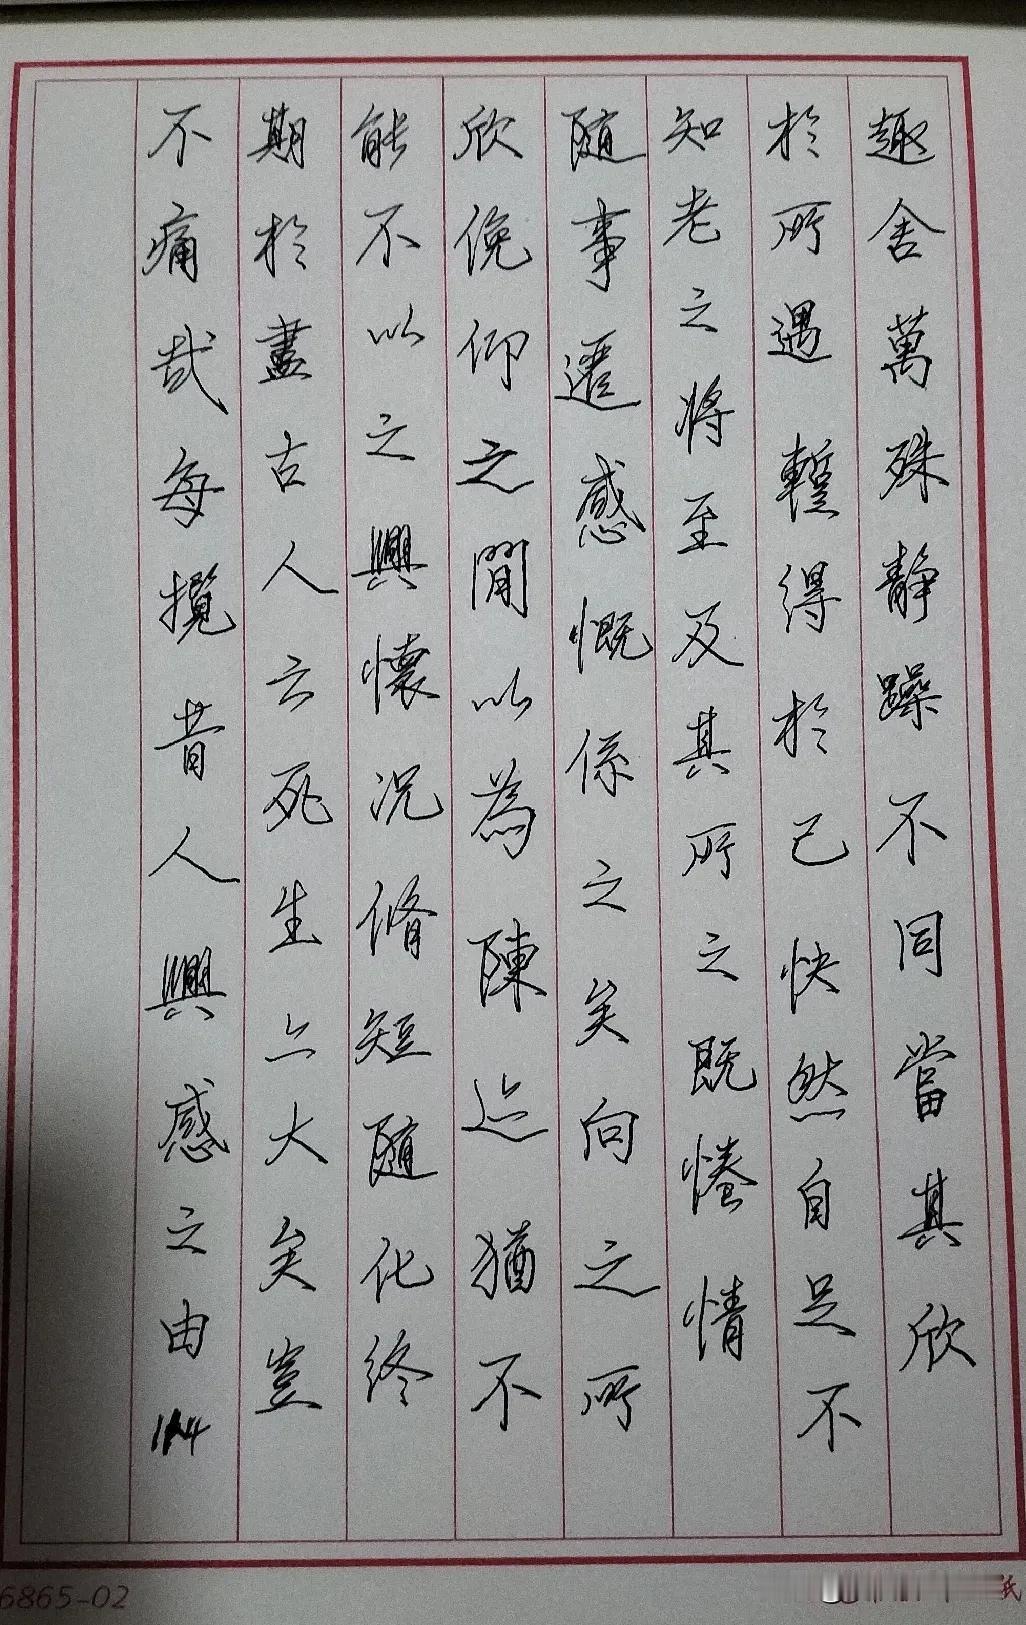 趣舍萬殊静躁不同當其欣
於所遇暫得於己快然自足不
知老之将至及其所之既惓情
隨事遷感慨係之矣向之所
欣俛仰之閒以為陳迹猶不
能不以之興懷況脩短隨化終
期於盡古人云死生亦大矣豈
不痛哉每攬昔人興感之由
6865-02